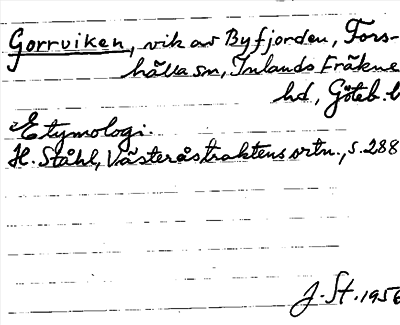 Gorrviken, vik av Byfjorden, Fors-
hälla sn, Inlands Fräkne
hd, Göteb. l
Etymologi.
H. Ståhl, Västeråstraktens ortn., s. 288
J. St. 1956